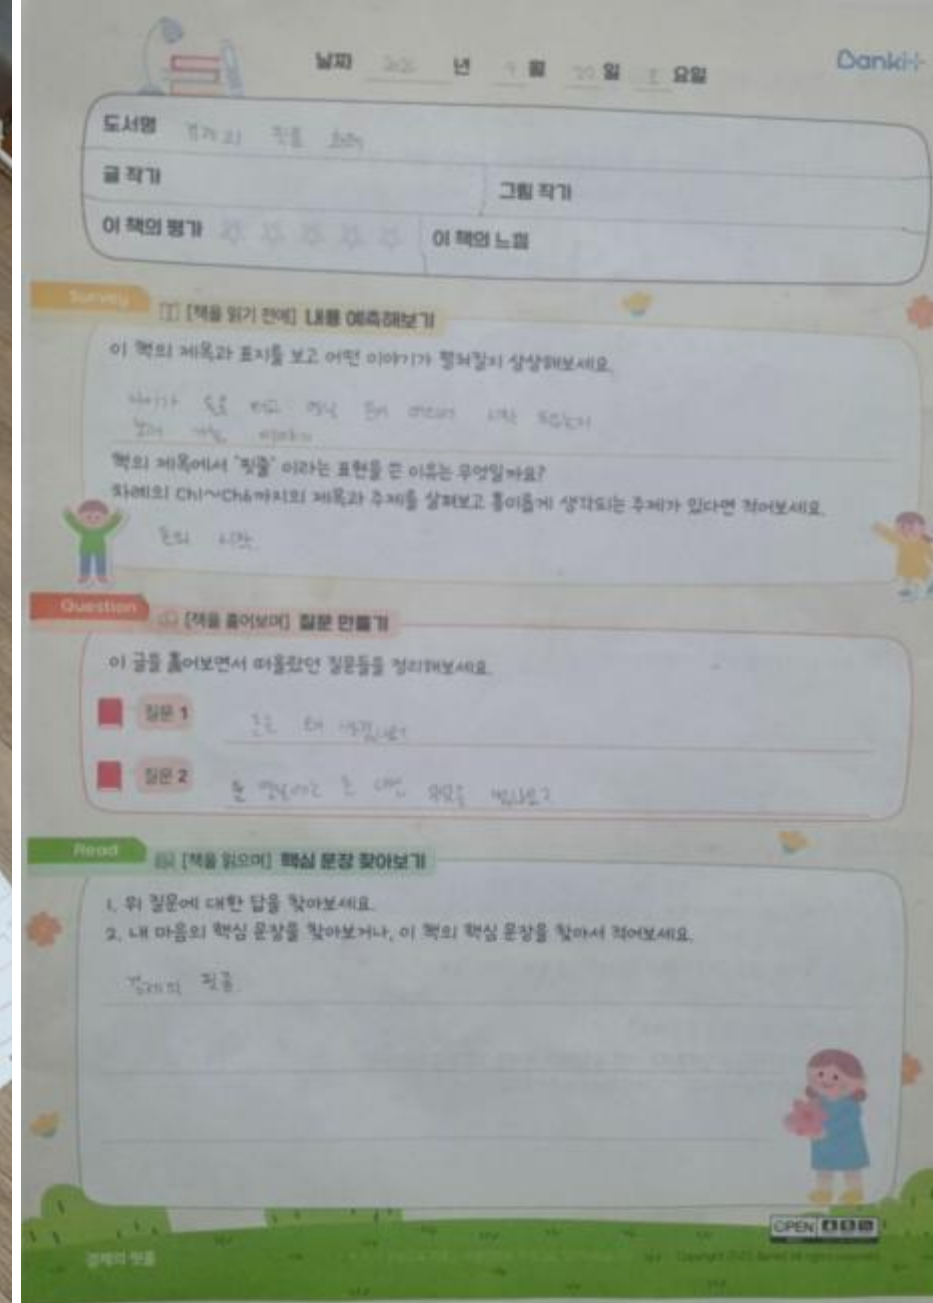 날짜 년 9월 20일 요일
Danki++
도서명 경제의 핏줄 화폐
글 작가
그림 작가
이 책의 평가 ☆☆☆☆☆
이 책의 느낌
Survey
[책을 읽기 전에] 내용 예측해보기
이 책의 제목과 표지를 보고 어떤 이야기가 펼쳐질지 상상해보세요.
이야기
책의 제목에서 '핏줄' 이라는 표현을 쓴 이유는 무엇일까요?
차례의 Ch1~Ch6까지의 제목과 주제를 살펴보고 흥미롭게 생각되는 주제가 있다면 적어보세요.
돈의 시작
Question
[책을 훑어보며] 질문 만들기
이 글을 훑어보면서 떠올랐던 질문들을 정리해보세요.
질문 1 돈은 왜 생겼나요?
질문 2
Read
[책을 읽으며] 핵심 문장 찾아보기
1. 위 질문에 대한 답을 찾아보세요.
2. 내 마음의 핵심 문장을 찾아보거나, 이 책의 핵심 문장을 찾아서 적어보세요.
경제의 핏줄
OPEN
경제의 핏줄